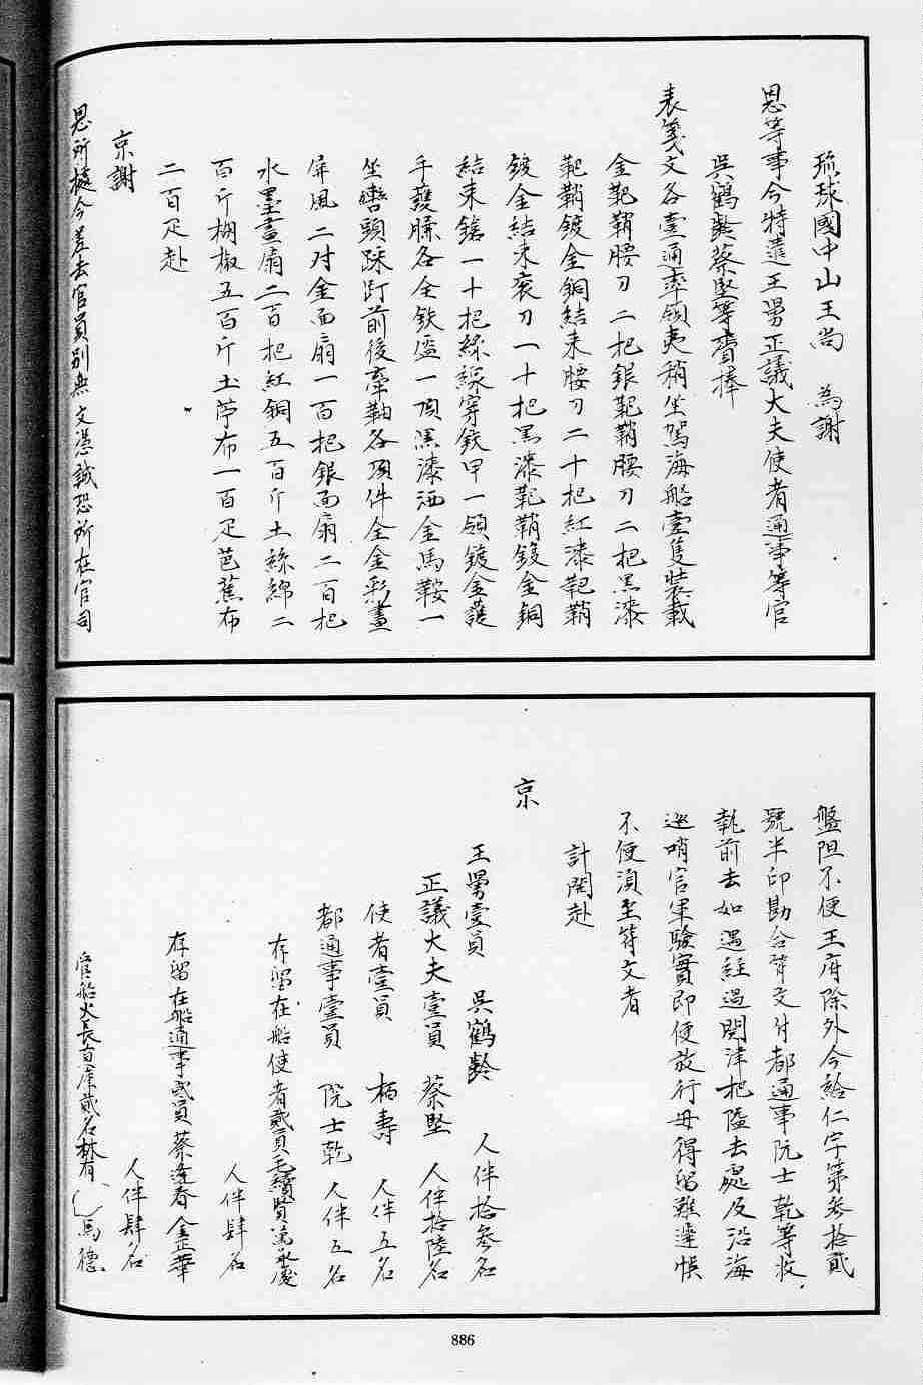 琉球國中山王尚　為謝
恩等事今特遣王舅正議大夫使者通事等官
吳鶴齡蔡堅等齎捧
表箋文各壹通率領夷稍坐駕海船壹隻裝載
金靶鞘腰刀二把銀靶鞘腰刀二把黑漆
靶鞘鍍金銅結束腰刀二十把紅漆靶鞘
鍍金結束袞刀一十把黑漆靶鞘鍍金銅
結束鎗一十把絲線穿鉄甲一領鍍金護
手護膝各全鉄盔一頂黑漆洒金馬鞍一
坐轡頭踩䟓前後牽鞦各項件全金彩畫
屏風二对金面扇一百把銀面扇二百把
水墨畫扇二百把紅銅五百斤土絲綿二
百斤胡椒五百斤土苧布一百疋芭蕉布
二百疋赴
京謝
恩所據今差去官員別無文憑誠恐所在官司
盤阻不便王府除外今給仁字第叁拾貳
號半印勘合符文付都通事阮士乾等收
執前去如遇經過関津把隘去處及沿海
巡哨官軍驗實即便放行毋得留難遲悞
不便湏至符文者
計開赴
京
王舅壹員　吳鶴齡　人伴拾叁名
正議大夫壹員　蔡堅　人伴拾陸名
使者壹員　柏壽　人伴五名
都通事壹員　阮士乾　人伴五名
存留在船使者貳員毛繼賢　永慶
人伴肆名
存留在船通事貳員蔡逢春　金正華
人伴肆名
官船火長直庫貳名林有　馬德
886